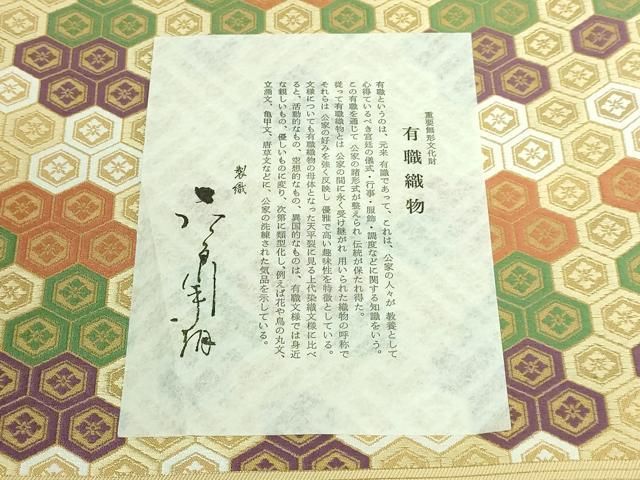 重要無形文化財
有職織物
有職というのは、元来 有識であって、これは、公家の人々が 教養として
心得ているべき宮廷の儀式・行事・服飾・調度などに関する知識をいう。
この有職を通じて 公家の諸形式が整えられ 伝統が保たれ得た。
従って有職織物とは 公家の間に永く受け継がれ 用いられた織物の呼称で
それらは 公家の好みを強く反映し 優雅で高い趣味性を特徴としている。
文様についても有職織物の母体となった天平裂に見る上代染織文様に比べ
ると、活動的なもの、空想的なもの、異国的なものは、有職文様では身近
な親しいもの、優しいものに変り、次第に類型化し（例えば花や鳥の丸文、
立涌文、亀甲文、唐草文などに、公家の洗練された気品を示している。
製織